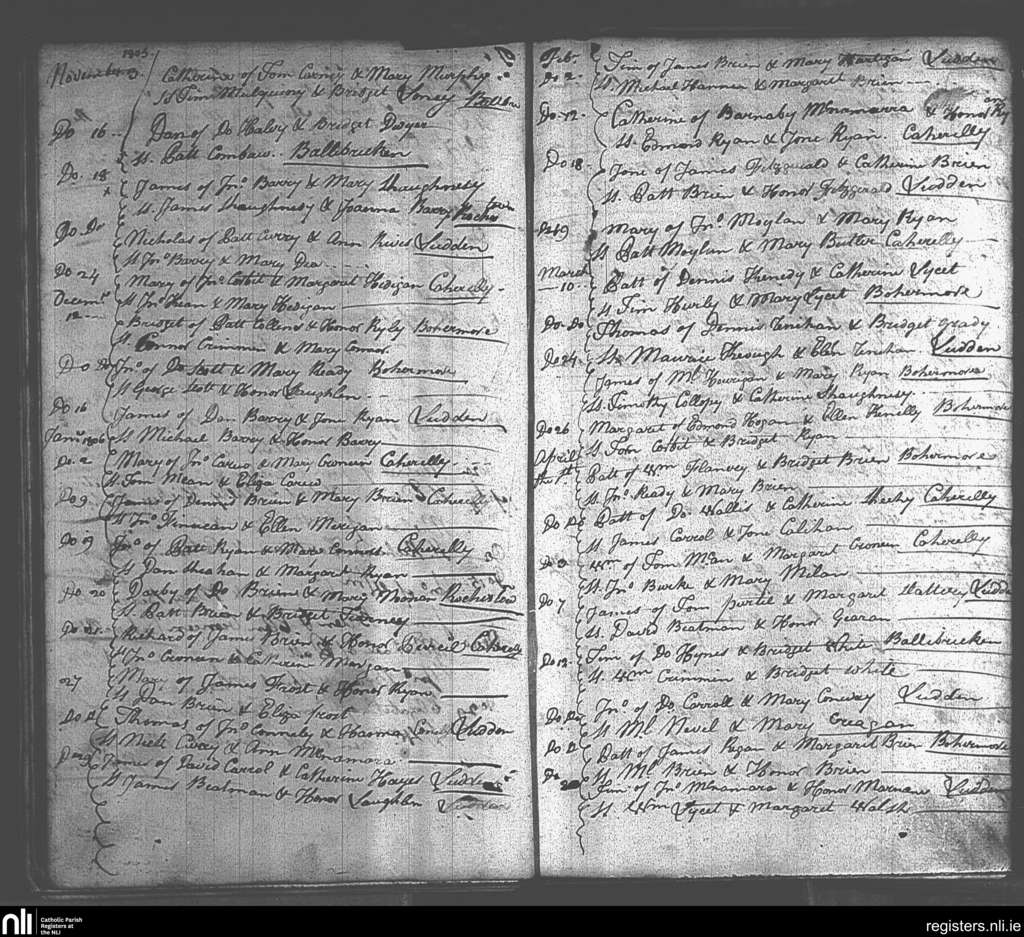 1805
November 3. Catherine of Tom Carney & Mary Murphy
Ss Tim Mulqueeny & Bridget Toney Ballibr
Do 16 Dan of Do Haley & Bridget Dwyer
Ss. Patt Conbaw. Ballibricken
Do. 18 James of Jno. Barry & Mary Shaughnesy
Ss. James Shaughnesy & Joanna Barry Rochestown
Do Do Nicholas of Patt Curry & Ann Rives Ludden
Ss Jno Barry & Mary Dea
Do 24 Mary of Jno. Corbit & Margaret Hedigan Caherelly
Ss Jno Hean & Mary Hedigan
Decemr. 12 Bridget of Patt Collens & Honor Kyly Bohermore
Ss. Connor Crimmin & Mary Connor
Do Do Jno. of Do Scott & Mary Ready Bohermore
Ss George Scott & Honor Laughlen
Do 16 James of Dan Barry & Jone Ryan Ludden
Ss Michael Barry & Honor Barry
Janu. 1806
Do. 2 Mary of Jno. Carew & Mary Croneen Caherelly
Ss. Tom Mean & Eliza Carew
Do 9 James of Dennis Brien & Mary Brien Caherelly
Ss Jno. Finucan & Ellen Merigan
Do 19 Jno. of Patt Ryan & Mary Connors Caherelly
Ss Dan Meahan & Margaret Ryan
Do. 20 Darby of Do Briene & Mary Rochestow
Ss. Patt Brien & Bridget Tierney
Do Richard of James Brien & Honor Caherelly
Ss Jno Croneen & Catherine Morgan
27 Mary of James Frost & Honor Ryan
Ss Dan Brien & Eliza frost
Do Do Thomas of Jno Connely & Hanna Ludden
Ss Mick Currey & Ann McNamara
Do James of David Carrol & Catherine Hayes Ludden
Ss James Beatman & Honor Laughlen Ludden
Feb.
Do 2. Tim of James Brien & Mary Hartigan Ludden
Ss. Michael Hannen & Margaret Brien
Do. 12. Catherine of Barnaby Mcnamarra & Honor Ryan
Ss. Edmond Ryan & Jone Ryan. Caherelly
Do 18 Jone of James Fitzgerald & Catherine Brien
Ss. Patt Brien & Honor Fitzgerald Ludden
Do 19 Mary of Jno. Moylan & Mary Ryan
Ss Patt Moylan & Mary Butler Caherelly
March 10. Patt of Dennis Kenedy & Catherine Lyeet
Ss Tim Hurly & Mary Lyeet Bohermore
Do. Do Thomas of Dennis Lenihan & Bridget Grady
Ss. Maurice Keough & Ellen Lenehan Ludden
Do 24. James of Ml Hourigan & Mary Ryan Bohermore
Ss. Timothy Collopy & Catherine Shaughnesy
Do 26 Margaret of Edmond Hogan & Ellen Kenilly Bohermore
Ss John Corbit & Bridget Ryan
April the Patt of Wm Flanery & Bridget Brien Bohermore
Ss. Jno. Ready & Mary Brien
Do Do Patt of Do. Wallis & Catherine Sheehy Caherelly
Ss. James Carrol & Jone Calihan
Do Wm. of Tom & Margaret Croneen Caherelly
Ss. Jno. Burke & Mary Milan
Do 7 James of Tom Purtil & Margaret Slattery Ludde
Ss. David Beatman & Honor Gearan
Do 13. Tim of Do Hynes & Bridget White Ballibricken
Ss. Wm Crimmen & Bridget White
Do. Do Jno. of Do Carroll & Mary Conway Ludden
Ss Ml Nevel & Mary Creagan
Do Do Patt of James Ryan & Margaret Brien Bohermore
Ss Ml Brien & Honor Brien
Do 20 Tim of Jno Mcnamara & Honor Ludden
Ss. Wm Lyeet & Margaret Walsh
nli
Catholic Parish
Registers at
the NLI
registers.nli.ie